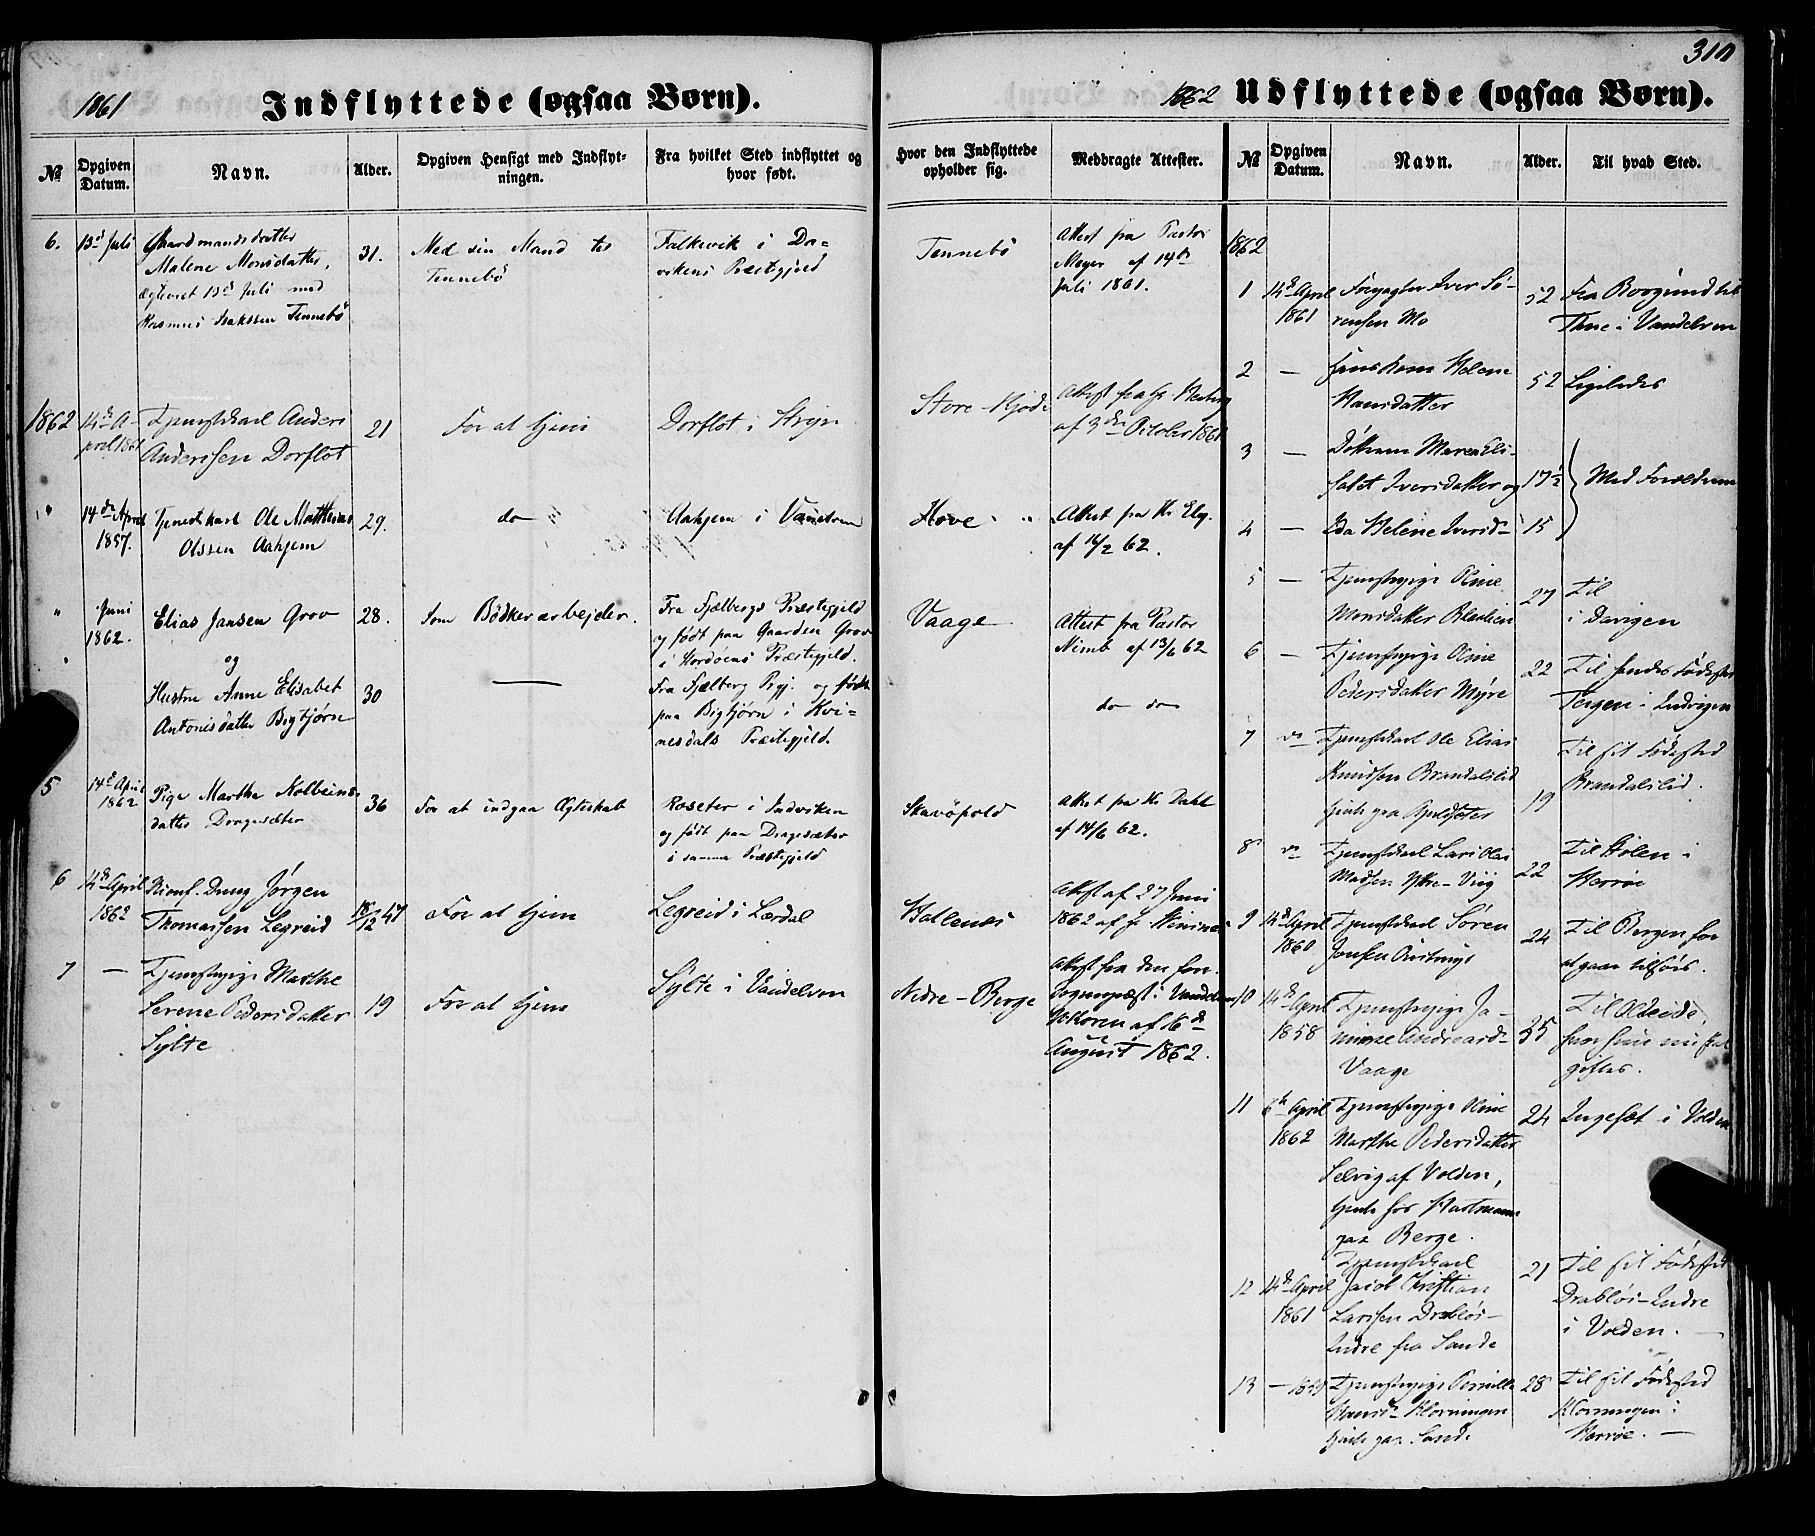 310
1861
Indflyttede (ogsaa Børn).
№
Opgiven Datum.
Navn.
Alder.
Opgiven Hensigt med Indflyt-
ningen.
Fra hvilket Sted indflyttet og
hvor født.
Hvor den Indflyttede
opholder sig.
Medbragte Attester.
6. 13d Juli
Gaardmandsdatter
Malene Monsdatter,
ægteviet 13d Juli med
Rasmus Isakssen Tennebö
31.
Med sin Mand til
Tennebö
Falkevik i Da-
vikens Præstegjeld
Tennebö
Attest fra Pastor
Meyer af 14de
Juli 1861.
1862
14de A-
pril 1861
Tjenestekarl Anders
Anderssen Dorflot
21
For at tjene
Dorflot i Stryn
Store-
af 3die October 1861
"
14de April
1857.
Tjenestkarl Ole Matthias
Olssen Aahjem
29.
do
Aahjem i Vanelven
Hove
Attest fra Hr
af 16/2 62.
"
Juni
1862.
Elias Jansen Grov
28.
Som Bödkerarbejder.
Fra Fjælbergs Præstegjeld
og födt paa Gaarden Grov
i Præstegjeld.
Vaage
Attest fra Pastor
af 13/6 62
og
Hustru Anne Elisabet
Antonisdatter Bigtjørn
30
Fra Fjælberg Prgj. og födt
paa Bigtjørn i Kvi-
nesdals Præstegjeld.
do do
5
14de April
1862
Pige Marthe
datter Dragesæter
36
For at indgaa Ægteskab
Roseter i Indviken
og født paa Dragesæter
i samme Præstegjeld
Skavöpold
Attest fra Hr Dahl
af 14/6 62.
6
14de April
1862
Jørgen
Thomassen Legreid
18/12 47
For at tjene
Legreid i Lærdal
Hallenæs
Attest af 27 Juni
1862 af
7 —
Tjenestepige Marthe
Serene Pedersdatter
Sylte
19
For at tjene
Sylte i Vandelven
Nedre-Berge
Attest fra den
Sognepræst i Vandelven
af 16de
August 1862.
1862
Udflyttede (ogsaa Børn).
№
Opgiven Datum.
Navn.
Alder.
Til hvad Sted.
1862
1
14de April
1861
Iver Sö-
rensen Mo
52
Fra Borgund til
i Vandelven
2 —
Helene
Hansdatter
52
Ligeledes
3 —
Døttrene Maren Eli-
sabet Iversdatter og
17½
Med Forældrene
4 —
Ida Helene Iversd-
15
5 —
Tjenestepige Oline
Monsdatter
27
Til
i Davigen
6 —
Tjenestepige Oline
Pedersdatter Myre
22
Til hendes Fødested
i Indvigen
7
Tjenestekarl Ole Elias
Knudsen Brandalslid
19
Til sit Fødested
Brandalslid.
8
Tjenestekarl Lars Olai
Madsen Ytre-Viig
22
Til i
Herröe
9
14de April
1860
Tjenestekarl Søren
24
Til Bergen for
at gaae tilsøes.
10
14de April
1858
Tjenestepige Ja-
Vaage
35
Til
giftes.
11
6te April
1862
Tjenestepige Oline
Marthe Pedersdatter
Selvig af Volden,
tjente hos
paa Berge.
24
i Volden
12
14de April
1861
Tjenestekarl
Jacob Christian
Larssen Drabløs-
Indre fra Sande
21
Til sit Fødested
Drabløs-Indre
i Volden.
13
— 1859
Tjenestepige Pernille
Hansd- Kloveningen
tjente paa Sande
28
Til sit Fødested
Kloveningen i
Herröe.